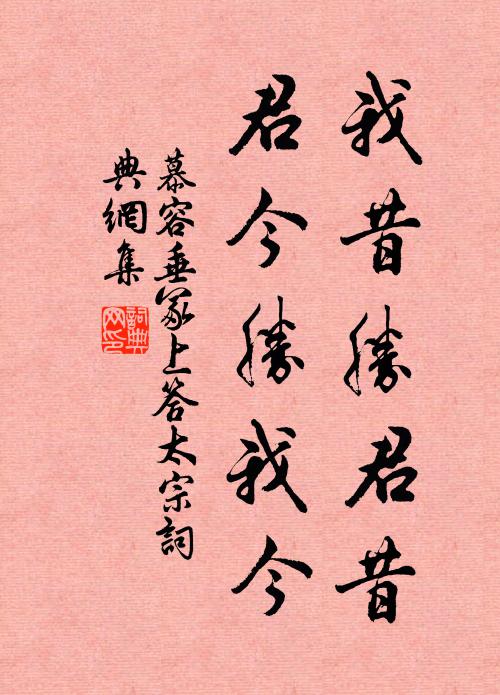 我昔勝君昔
君今勝我今
慕容垂冢上答太宗詞
典網集
詞典
网印